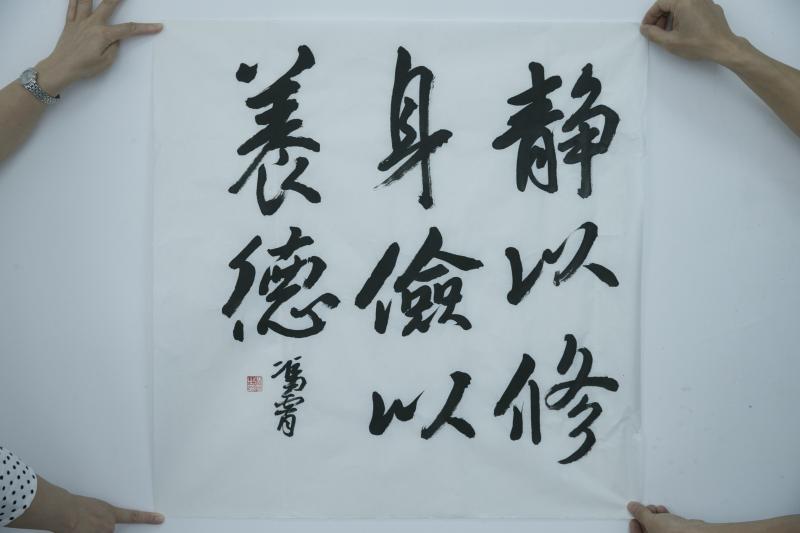 静以修
身儉以
養德
馮霄